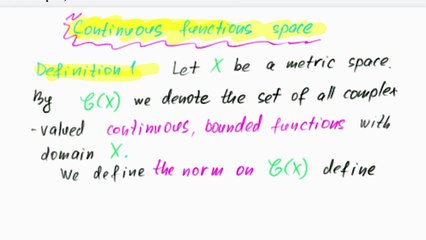 Continuous functions space
Definition 1. Let X be a metric space.
By 𝒞(X) we denote the set of all complex
-valued continuous, bounded functions with
domain X.
We define the norm on 𝒞(X) define